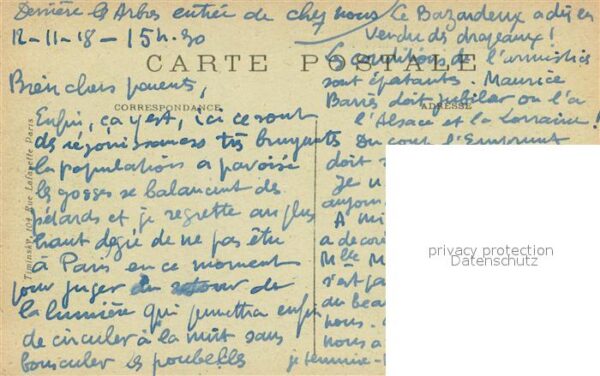 Derrière les Arbres entrée de chez nous
12-11-18 - 15h.30
CARTE POSTALE
CORRESPONDANCE
ADRESSE
Bien chers parents,
Enfin, ça y est, ici ce sont
des réjouissances très bruyantes
la population a pavoisé
les gosses se balancent des
pétards et je regrette au plus
haut degré de ne pas être
à Paris en ce moment
pour juger du retour de
la lumière qui permettra enfin
de circuler à la nuit sans
bousculer les poubelles
je termine
Le Bazardeux a dû en
vendre des drapeaux !
Les conditions de l'armistice
sont épatantes. Maurice
Barrès doit jubiler on l'a
l'Alsace et la Lorraine !
Du coup l'Emprunt
doit
Je
aujour
A mi
a décor
Mlle M
s'est
du beau
nous.
nous a
104 Rue Lafayette Paris
privacy protection
Datenschutz